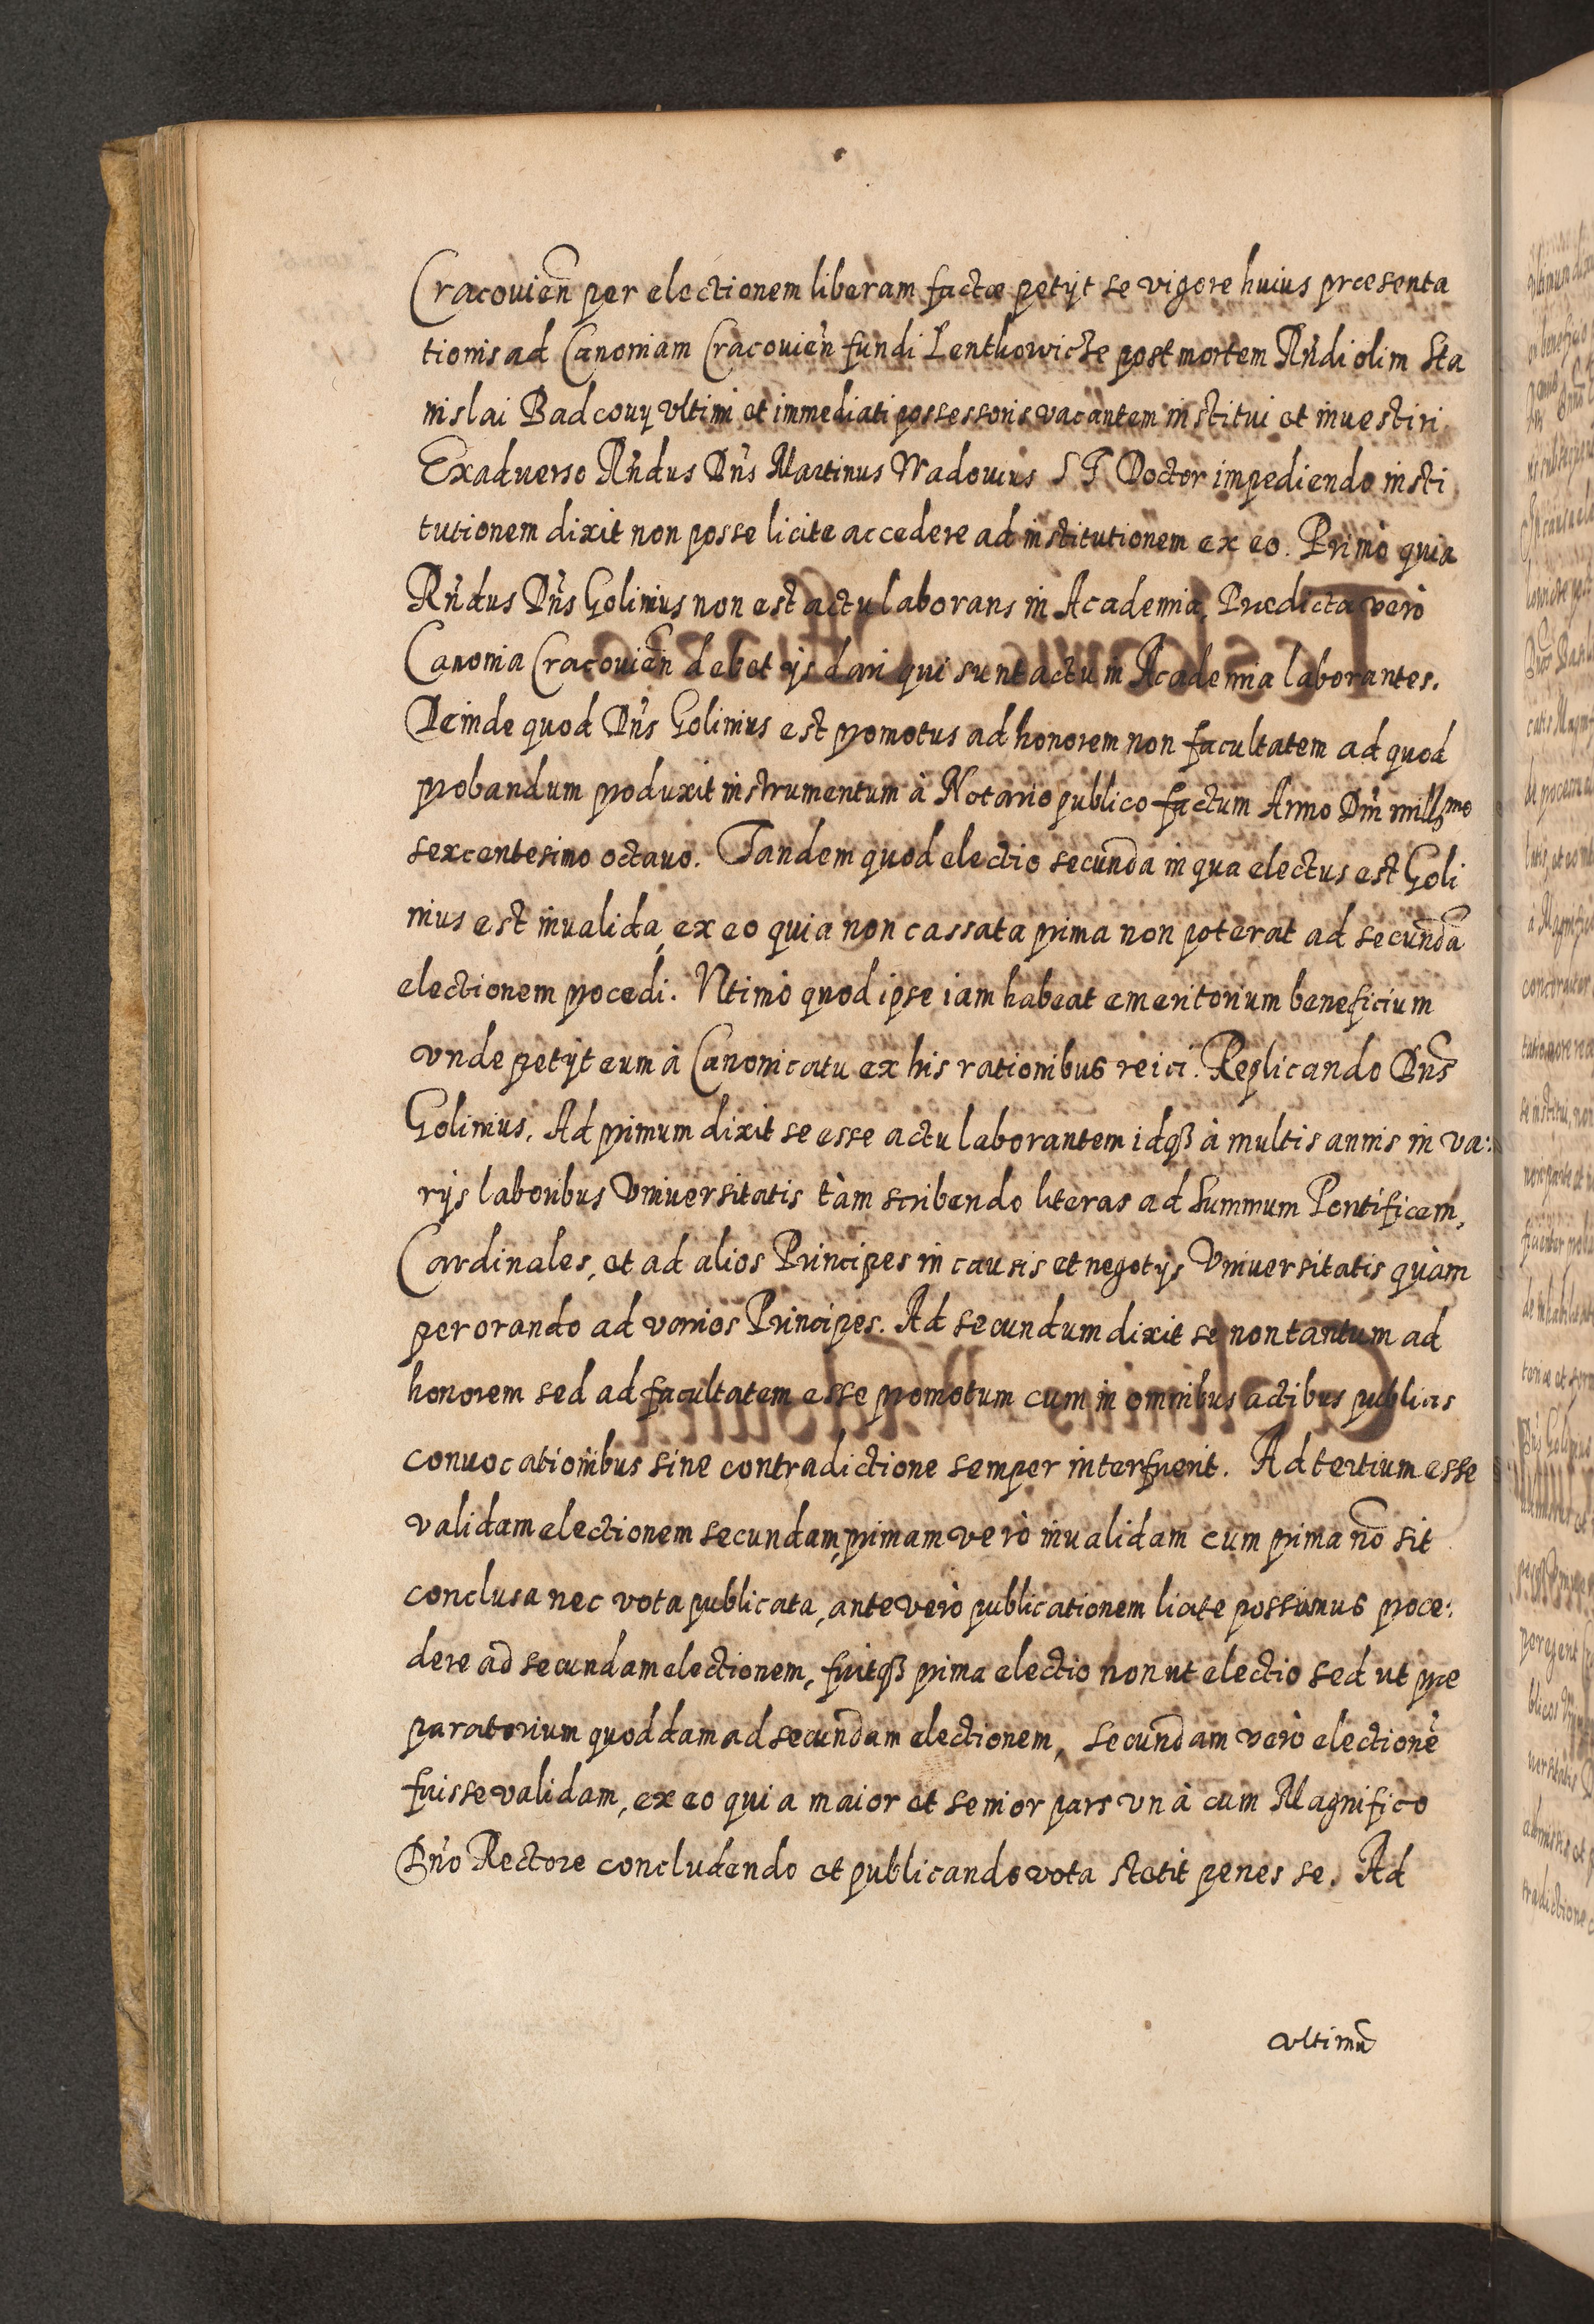 Cracouien̄ per electionem liberam factæ petijt se vigore huius præsenta
tionis ad Canoniam Cracouien̄ fundi Lenthowicze post mortem Rn̄di olim Sta
nislai Badcouij vltimi et immediati possessoris vacantem institui et inuestiri
Exaduerso Rn̄dus Dn̄s Martinus Wadouius S T Doctor impediendo insti
tutionem dixit non posse licite accedere ad institutionem ex eo. Primò quia
Rn̄dus Dn̄s Golinius non est actu laborans in Academia, Prædicta verò
Canonia Cracouien̄ debet ijs dari qui sunt actu in Academia laborantes.
Deinde quod Dn̄s Golinius est promotus ad honorem non facultatem ad quod
probandum produxit instrumentum à Notario publico factum Anno Dn̄i millmo
sexcentesimo octauo. Tandem quod electio secunda in qua electus est Goli
nius est inualida, ex eo quia non cassata prima non poterat ad secundā
electionem procedi. Vltimò quod ipse iam habeat emeritorium beneficium
vnde petijt eum à Canonicatu ex his rationibus reici. Replicando Dn̄s
Golinius. Ad primum dixit se esse actu laborantem idqꝫ à multis annis in va:
rijs laboribus Vniuersitatis tàm scribendo literas ad Summum Pontificem,
Cardinales, et ad alios Principes in causis et negotijs Vniuersitatis quàm
perorando ad varios Principes. Ad secundum dixit se non tantum ad
honorem sed ad facultatem esse promotum cum in omnibus actibus publicis
conuocationibus sine contradictione semper interfuerit. Ad tertium esse
validam electionem secundam, primam verò inualidam cum prima nō sit
conclusa nec vota publicata, ante verò publicationem licite possumus proce:
dere ad secundam electionem, fuitqꝫ prima electio non ut electio sed ut præ
paratorium quoddam ad secundam electionem, secundam verò electionē
fuisse validam, ex eo quia maior et senior pars vnà cum Magnifico
Dn̄o Rectore concludendo et publicando vota stetit penes se. Ad
vltimū